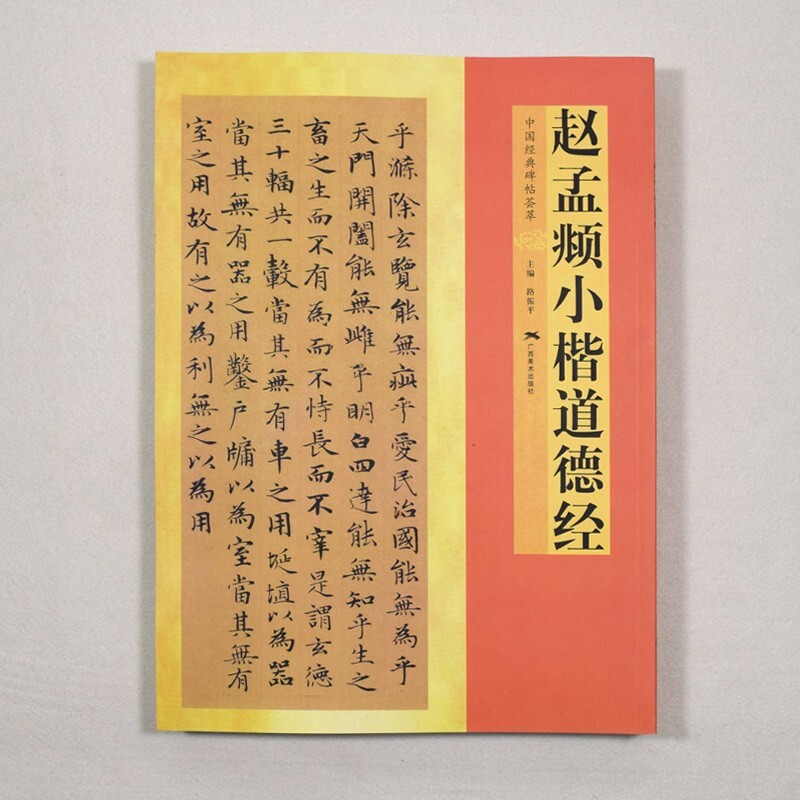 赵孟頫小楷道德经
中国经典碑帖荟萃
主编 路振平
广西美术出版社
乎滌除玄覽能無疵乎愛民治國能無為乎
天門開闔能無雌乎明白四達能無知乎生之
畜之生而不有為而不恃長而不宰是謂玄德
三十輻共一轂當其無有車之用埏埴以為器
當其無有器之用鑿戶牖以為室當其無有
室之用故有之以為利無之以為用